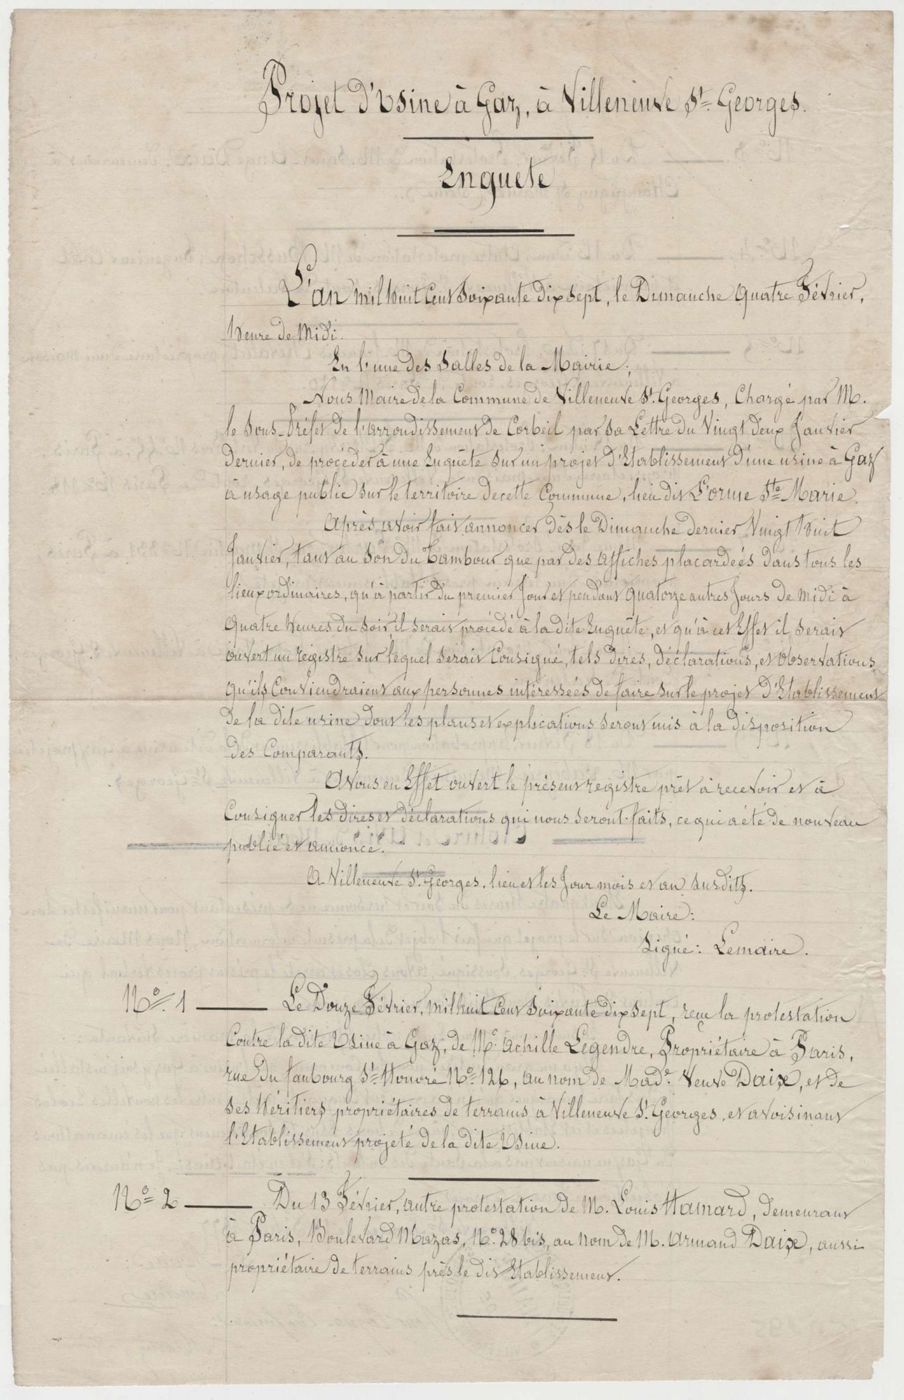 Projet d'Usine à Gaz, à Villeneuve St= Georges.
Enquête
L'an mil huit Cent Soixante dix sept, le Dimanche Quatre Février,
heure de Midi.
En l'une des Salles de la Mairie,
Nous Maire de la Commune de Villeneuve St. Georges, Chargé par M.
le Sous-Préfet de l'arrondissement de Corbeil par sa Lettre du Vingt deux Janvier
Dernier, de procéder à une Enquête sur un projet d'Etablissement d'une usine à Gaz
à usage public sur le territoire de cette Commune, lieu dit l'orme Ste= Marie.
Après avoir fait annoncer dès le Dimanche dernier Vingt huit
Janvier, tant au Son du Tambour que par des affiches placardées dans tous les
lieux ordinaires, qu'à partir du premier Jour et pendant Quatorze autres Jours de midi à
Quatre heures du Soir, il serait procédé à la dite Enquête, et qu'à cet Effet il serait
ouvert un registre sur lequel serait Consigné, tels dires, déclarations, et Observations
qu'ils Conviendraient aux personnes intéressées de faire sur le projet D'Etablissement
de la dite usine dont les plans et explications seront mis à la disposition
des Comparants.
Avons en Effet ouvert le présent registre prêt à recevoir et à
Consigner les dires et déclarations qui nous seront faits, ce qui a été de nouveau
publié et annoncé.
A Villeneuve St. Georges, lieu et les Jour mois et an susdits.
Le Maire:
Signé: Lemaire.
No. 1 — Le Douze Février, mil huit Cent Soixante dix sept, reçu la protestation
Contre la dite Usine à Gaz, de Mr. Achille Legendre, Propriétaire à Paris,
rue du faubourg St= Honoré No= 126, au nom de Made. Veuve Daix, et de
Ses héritiers propriétaires de terrains à Villeneuve St. Georges, et avoisinant
l'Etablissement projeté de la dite Usine.
No= 2 — Du 13 Février, autre protestation de M. Louis Hamard, demeurant
à Paris, Boulevard Mazas, No= 28 bis, au nom de M. Armand Daix, aussi
propriétaire de terrains près le dit Etablissement.